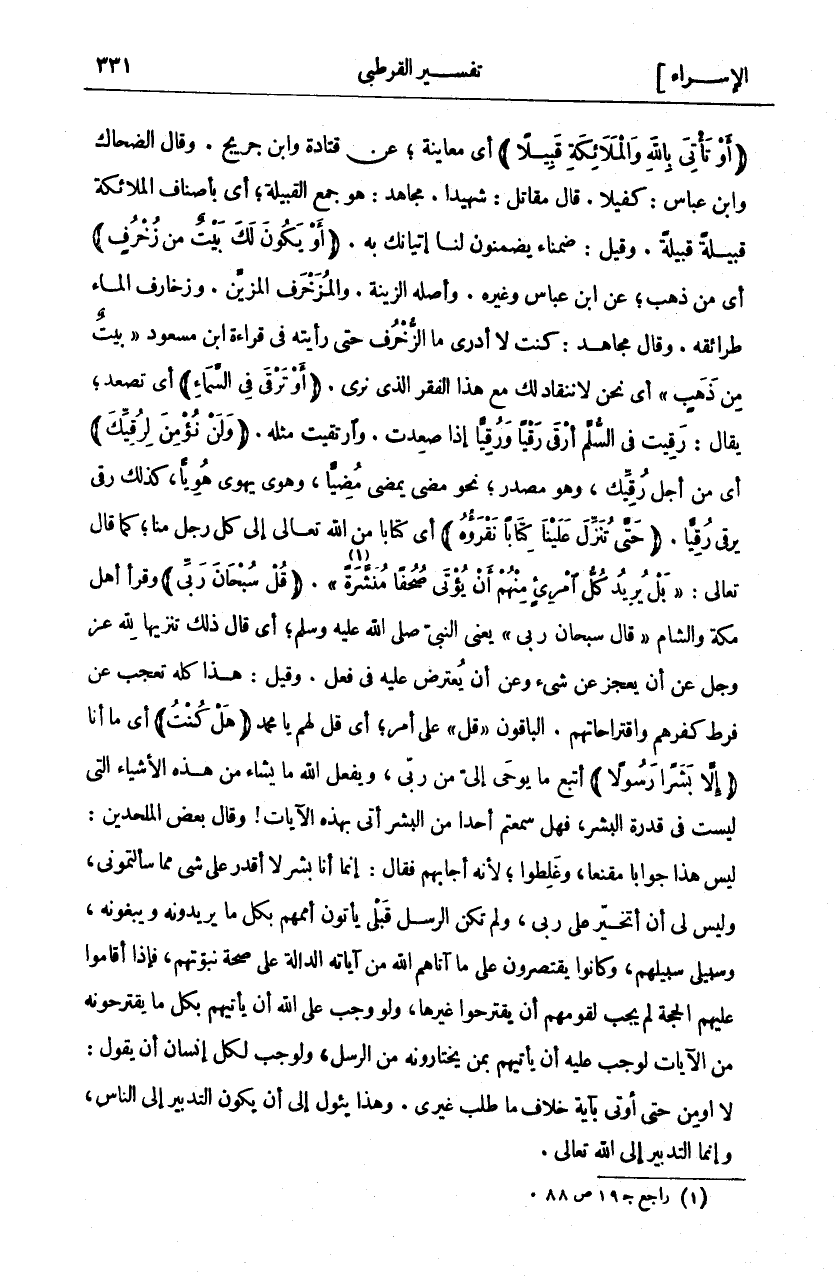 الإسراء ] تفسير القرطبى ٣٣١
﴿ أَوْ تَأْتِىَ بِاللهِ وَالْمَلَائِكَةِ قَبِيلًا ﴾ أى معاينة ؛ عن قتادة وابن جريج . وقال الضحاك
وابن عباس : كفيلا . قال مقاتل : شهيدا . مجاهد : هو جمع القبيلة ؛ أى بأصناف الملائكة
قبيلةً قبيلةً . وقيل : ضمناء يضمنون لنا إتيانك به . ﴿ أَوْ يَكُونَ لَكَ بَيْتٌ من زُخْرُفٍ ﴾
أى من ذهب ؛ عن ابن عباس وغيره . وأصله الزينة . والمُزَخْرَف المزيَّن . وزخارف الماء
طرائقه . وقال مجاهد : كنت لا أدرى ما الزُّخْرُف حتى رأيته فى قراءة ابن مسعود « بيتٌ
مِن ذَهَبٍ » أى نحن لا ننقاد لك مع هذا الفقر الذى نرى . ﴿ أَوْ تَرْقَى فِى السَّمَاءِ ﴾ أى تصعد ؛
يقال : رَقِيت فى السُّلَّم أَرْقَى رَقْيًا وَرُقِيًّا إذا صعِدت . وآرتقيت مثله . ﴿ وَلَنْ نُؤْمِنَ لِرُقِيِّكَ ﴾
أى من أجل رُقِيِّك ، وهو مصدر ؛ نحو مضى يمضى مُضِيًّا ، وهوى يهوى هُوِيًّا ، كذلك رقى
يرقى رُقِيًّا . ﴿ حَتَّى تُنَزِّلَ عَلَيْنَا كِتَابًا نَقْرَؤُهُ ﴾ أى كتابا من الله تعالى إلى كل رجل منا ؛ كما قال
تعالى : « بَلْ يُرِيدُ كُلُّ آمْرِئٍ مِنْهُمْ أَنْ يُؤْتَى صُحُفًا مُنَشَّرَةً (١) » . ﴿ قُلْ سُبْحَانَ رَبِّى ﴾ وقرأ أهل
مكة والشام « قال سبحان ربى » يعنى النبىّ صلى الله عليه وسلم ؛ أى قال ذلك تنزيها لله عز
وجل عن أن يعجز عن شىء وعن أن يُعترض عليه فى فعل . وقيل : هذا كله تعجب عن
فرط كفرهم واقتراحاتهم . الباقون « قل » على أمر ؛ أى قل لهم يا محمد ﴿ هَلْ كُنْتُ ﴾ أى ما أنا
﴿ إِلَّا بَشَرًا رَسُولًا ﴾ أتبع ما يوحَى إلىّ من ربّى ، ويفعل الله ما يشاء من هذه الأشياء التى
ليست فى قدرة البشر ، فهل سمعتم أحدا من البشر أتى بهذه الآيات ! وقال بعض الملحدين :
ليس هذا جوابا مقنعا ، وغَلِطوا ؛ لأنه أجابهم فقال : إنما أنا بشر لا أقدر على شى مما سألتمونى ،
وليس لى أن أتخيّر على ربى ، ولم تكن الرسل قَبْلِى يأتون أممهم بكل ما يريدونه ويبغونه ،
وسبيلى سبيلهم ، وكانوا يقتصرون على ما آتاهم الله من آياته الدالة على صحة نبوّتهم ، فإذا أقاموا
عليهم الحجة لم يجب لقومهم أن يقترحوا غيرها ، ولو وجب على الله أن يأتيهم بكل ما يقترحونه
من الآيات لوجب عليه أن يأتيهم بمن يختارونه من الرسل ، ولوجب لكل إنسان أن يقول :
لا اومن حتى أوتى بآية خلاف ما طلب غيرى . وهذا يئول إلى أن يكون التدبير إلى الناس ،
وإنما التدبير إلى الله تعالى .
(١) راجع جـ ١٩ ص ٨٨ .